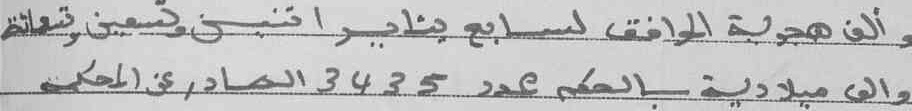 و ألف هجرية الموافق لسابع يناير اثنين وتسعين وتسعمائة
والف ميلادية بالحكم عدد 3435 الصادر عن المحكمة